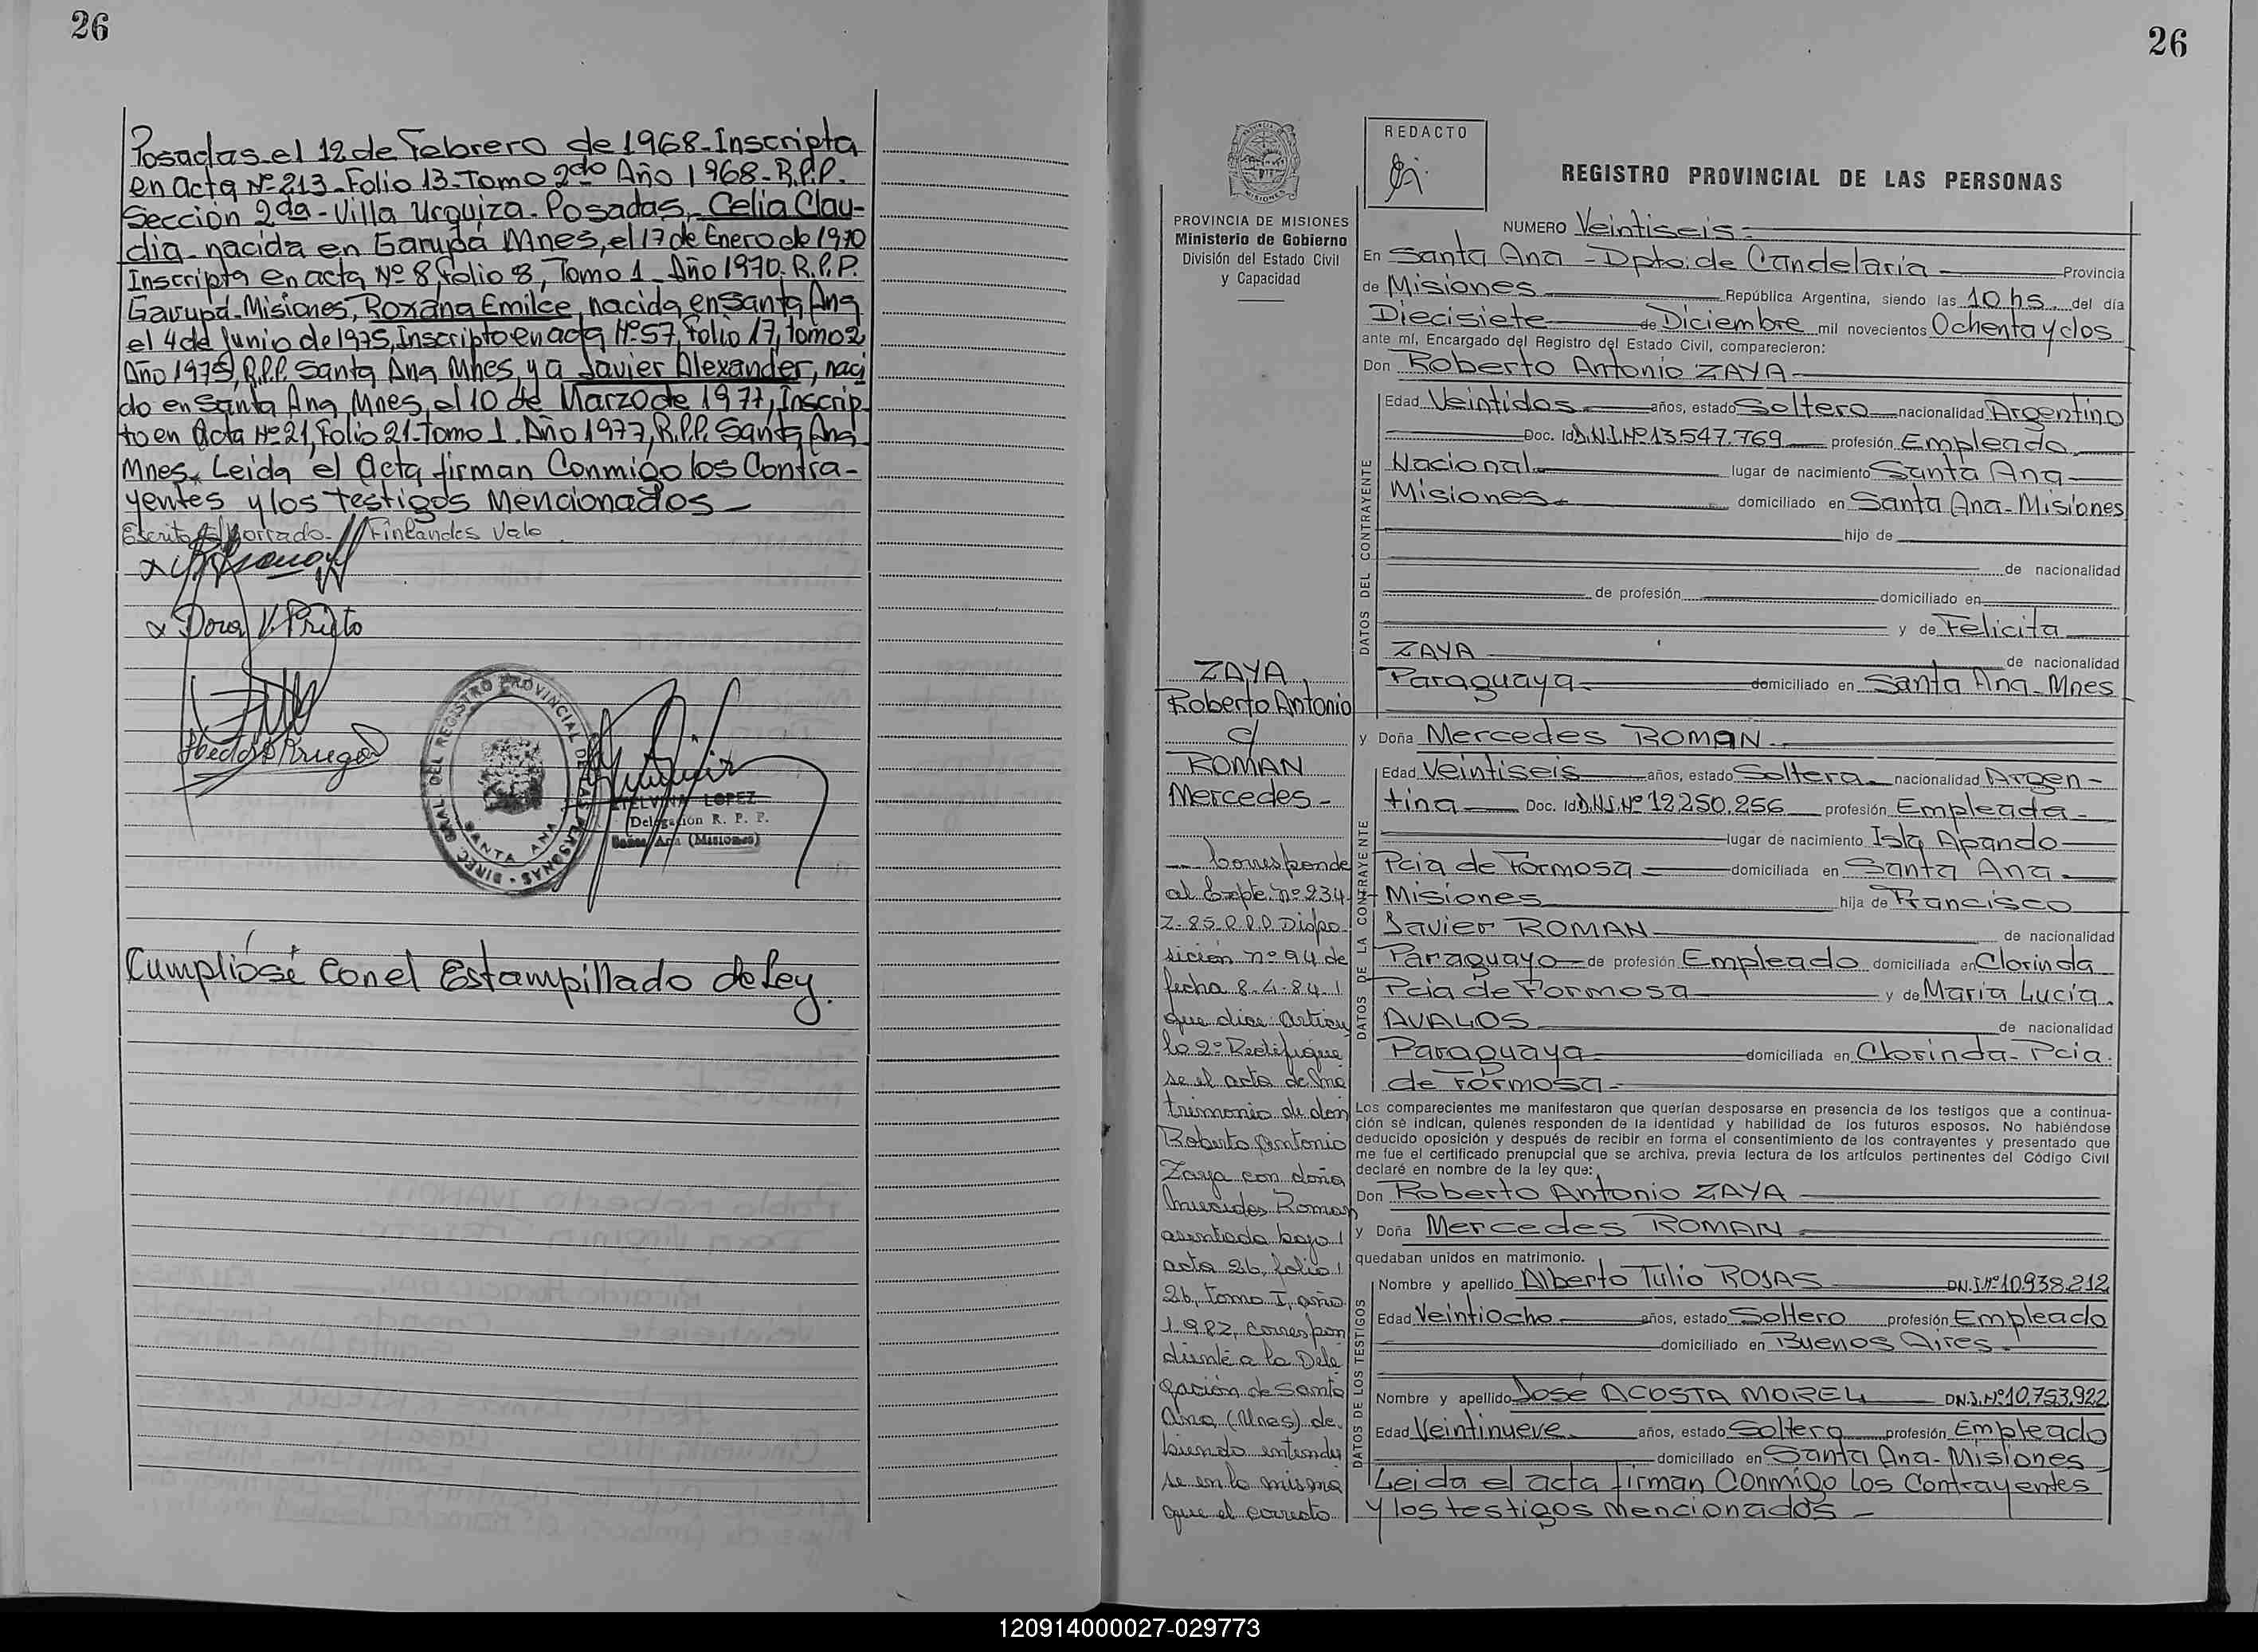 26
Posadas el 12 de Febrero de 1968-Inscripta
en acta Nº 213-Folio 13-Tomo 2do Año 1968-R.P.P.
Sección 2da-Villa Urquiza-Posadas, Celia Clau-
dia nacida en Garupá Mnes, el 17 de Enero de 1970
Inscripta en acta Nº 8, folio 8, Tomo 1-Año 1970-R.P.P.
Garupá-Misiones, Roxana Emilce, nacida en Santa Ana
el 4 de Junio de 1975, Inscripto en acta Nº 57, folio 17, tomo 2
Año 1975, R.P.P. Santa Ana Mnes, y a Javier Alexander, naci
do en Santa Ana, Mnes, el 10 de Marzo de 1977, Inscrip-
to en Acta Nº 21, Folio 21-Tomo 1. Año 1977, R.P.P. Santa Ana
Mnes. Leida el Acta firman Conmigo los Contra-
yentes y los testigos Mencionados
Escrito s/ borrado- Finlandes Vale
x Dora V. Prieto
DIREC. GRAL. DEL REGISTRO PROVINCIAL DE LAS PERSONAS
SANTA ANA
ETELVINA LOPEZ
Delegación R. P. P.
Santa Ana (Misiones)
Cumplióse con el Estampillado de Ley.
26
PROVINCIA DE MISIONES
Ministerio de Gobierno
División del Estado Civil
y Capacidad
REDACTO
REGISTRO PROVINCIAL DE LAS PERSONAS
NUMERO Veintiseis-
En Santa Ana - Dpto: de Candelaria Provincia
de Misiones República Argentina, siendo las 10 hs. del día
Diecisiete de Diciembre mil novecientos Ochenta y dos
ante mí, Encargado del Registro del Estado Civil, comparecieron:
Don Roberto Antonio ZAYA
DATOS DEL CONTRAYENTE
Edad Veintidos años, estado Soltero nacionalidad Argentino
Doc. Id. D.N.I. Nº 13.547.769 profesión Empleado
Nacional lugar de nacimiento Santa Ana
Misiones domiciliado en Santa Ana-Misiones
hijo de
de nacionalidad
de profesión domiciliado en
y de Felicita
ZAYA de nacionalidad
Paraguaya domiciliado en Santa Ana-Mnes
y Doña Mercedes ROMAN
DATOS DE LA CONTRAYENTE
Edad Veintiseis años, estado Soltera nacionalidad Argen-
tina Doc. Id. D.N.I. Nº 12.250.256 profesión Empleada
lugar de nacimiento Isla Apando
Pcia de Formosa domiciliada en Santa Ana
Misiones hija de Francisco
Javier ROMAN de nacionalidad
Paraguayo de profesión Empleado domiciliada en Clorinda
Pcia de Formosa y de Maria Lucia
AVALOS de nacionalidad
Paraguaya domiciliada en Clorinda-Pcia
de Formosa
Los comparecientes me manifestaron que querían desposarse en presencia de los testigos que a continua-
ción se indican, quienes responden de la identidad y habilidad de los futuros esposos. No habiéndose
deducido oposición y después de recibir en forma el consentimiento de los contrayentes y presentado que
me fue el certificado prenupcial que se archiva, previa lectura de los artículos pertinentes del Código Civil
declaré en nombre de la ley que:
Don Roberto Antonio ZAYA
y Doña Mercedes ROMAN
quedaban unidos en matrimonio.
DATOS DE LOS TESTIGOS
Nombre y apellido Alberto Tulio ROJAS DN.I. Nº 10.938.212
Edad Veintiocho años, estado Soltero profesión Empleado
domiciliado en Buenos Aires
Nombre y apellido José ACOSTA MOREL DN.I. Nº 10.753.922
Edad Veintinueve años, estado Soltero profesión Empleado
domiciliado en Santa Ana-Misiones
Leida el acta firman Conmigo los Contrayentes
y los testigos Mencionados
ZAYA
Roberto Antonio
c/
ROMAN
Mercedes-
Corresponde
al Expte. nº 234-
Z-85-R.P.P. Dispo-
sición nº 94 de
fecha 8-4-84
que dice: Artícu
lo 2º Rectifíque
se el acta de ma
trimonio de don
Roberto Antonio
Zaya con doña
Mercedes Roman
asentada bajo
acta 26, folio
26, tomo I, año
1.982, correspon
diente a la Dele
gación de Santa
Ana (Mnes) de
biendo entender
se en la misma
que el correcto
120914000027-029773